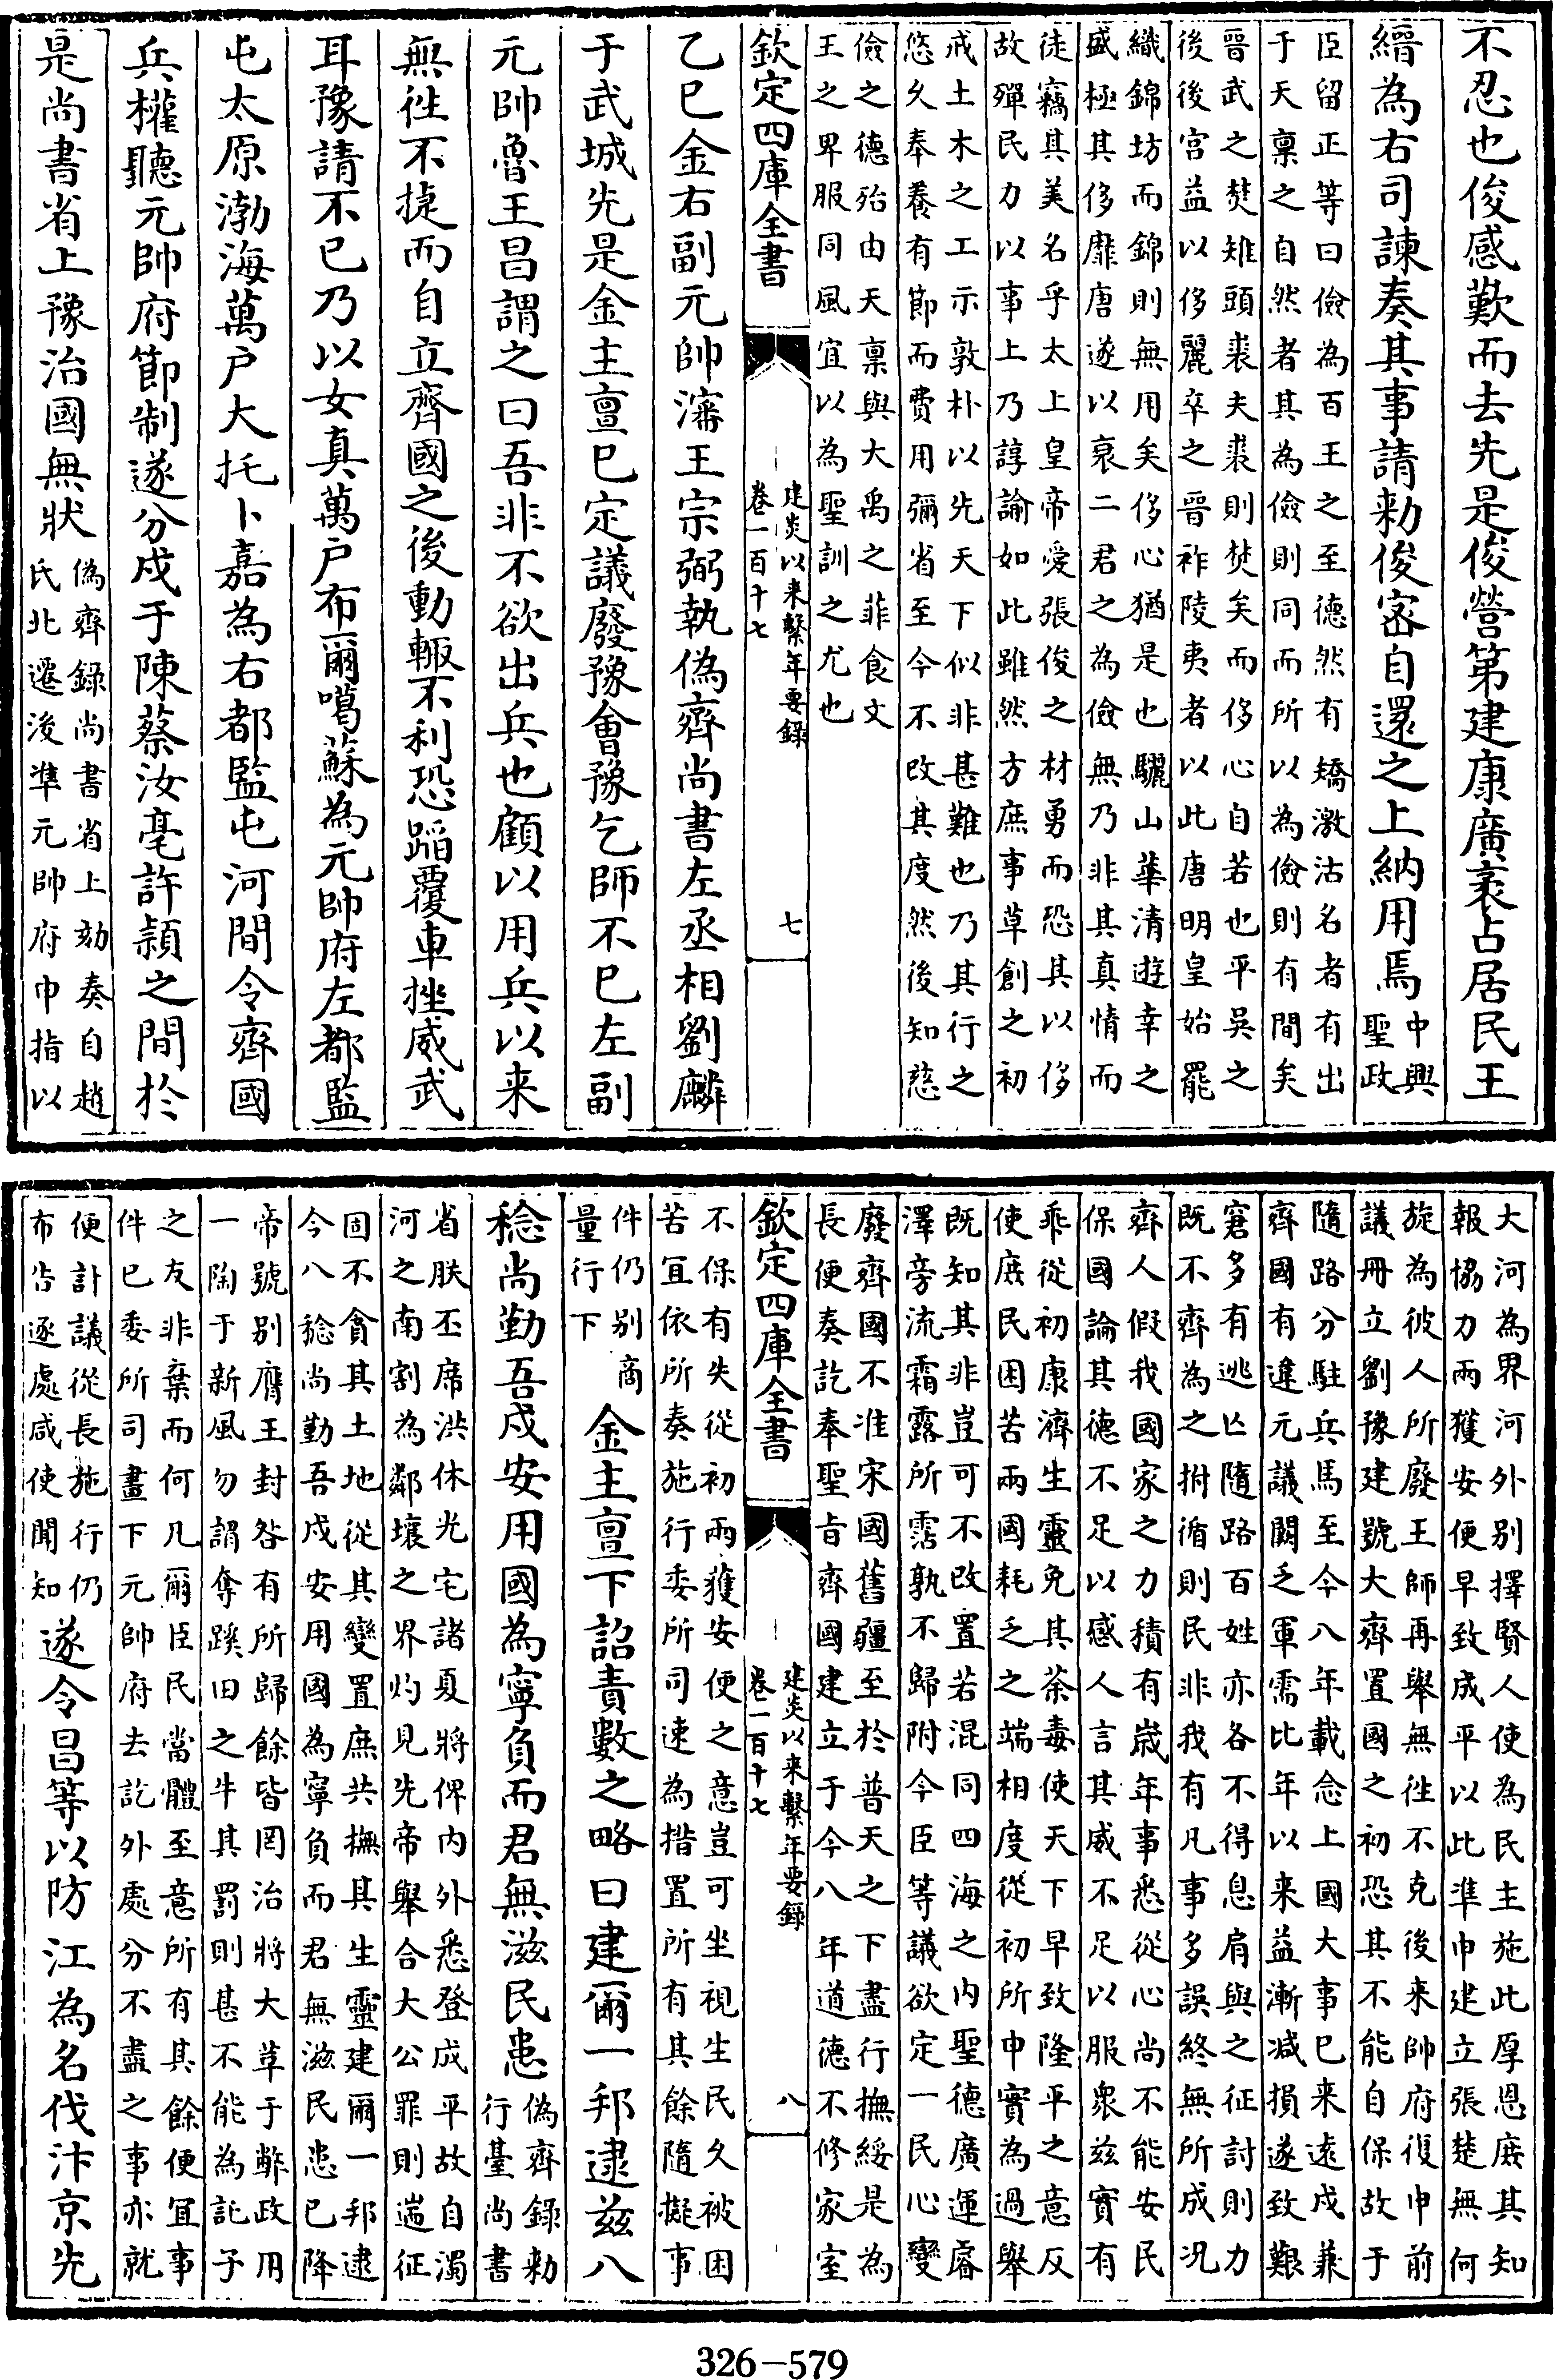 不忍也俊感歎而去先是俊營第建康廣袤占居民王
縉為右司諫奏其事請勑俊宻自還之上納用焉中興聖政
臣留正等曰儉為百王之至德然有矯激沽名者有出
于天稟之自然者其為儉則同而所以為儉則有間矣
晉武之焚雉頭裘夫裘則焚矣而侈心自若也平吳之
後後宮益以侈麗卒之晉祚陵夷者以此唐明皇始罷
織錦坊而錦則無用矣侈心猶是也驪山華清遊幸之
盛極其侈靡唐遂以衰二君之為儉無乃非其真情而
徒竊其美名乎太上皇帝愛張俊之材勇而恐其以侈
故殫民力以事上乃諄諭如此雖然方庶事草創之初
戒土木之工示敦朴以先天下似非甚難也乃其行之
悠久奉養有節而費用彌省至今不改其度然後知慈
儉之德殆由天稟與大禹之菲食文
王之卑服同風宜以為聖訓之尤也
欽定四庫全書
建炎以来繫年要錄
卷一百十七
七
乙巳金右副元帥瀋王宗弼執偽齊尚書左丞相劉麟
于武城先是金主亶已定議廢豫會豫乞師不已左副
元帥魯王昌謂之曰吾非不欲出兵也顧以用兵以来
無徃不捷而自立齊國之後動輙不利恐蹈覆車挫威武
耳豫請不已乃以女真萬户布爾噶蘇為元帥府左都監
屯太原渤海萬户大托卜嘉為右都監屯河間令齊國
兵權聽元帥府節制遂分戍于陳蔡汝亳許潁之間於
是尚書省上豫治國無狀偽齊録尚書省上劾奏自趙
氏北遷後凖元帥府巾指以
大河為界河外别擇賢人使為民主施此厚恩庻其知
報協力兩獲安便早致成平以此凖巾建立張楚無何
旋為彼人所廢王師再舉無徃不克後来帥府復申前
議冊立劉豫建號大齊置國之初恐其不能自保故于
隨路分駐兵馬至今八年載念上國大事已来逺戍兼
齊國有違元議闕乏軍需比年以来益漸减損遂致艱
窘多有逃亡隨路百姓亦各不得息肩與之征討則力
既不齊為之拊循則民非我有凡事多誤終無所成况
齊人假我國家之力積有嵗年事悉從心尚不能安民
保國論其德不足以感人言其威不足以服衆兹實有
乖從初康濟生靈免其荼毒使天下早致隆平之意反
使庻民困苦兩國耗乏之端相度從初所申實為過舉
既知其非豈可不改置若混同四海之内聖德廣運睿
澤旁流霜露所霑孰不歸附今臣等議欲定一民心變
廢齊國不准宋國舊疆至於普天之下盡行撫綏是為
長便奏訖奉聖旨齊國建立于今八年道德不修家室
欽定四庫全書
建炎以来繫年要錄
卷一百十七
八
不保有失從初兩獲安便之意豈可坐視生民久被困
苦宜依所奏施行委所司速為措置所有其餘隨擬事
件仍别商
量行下金主亶下詔責數之略曰建爾一邦逮兹八
稔尚勤吾戍安用國為寧負而君無滋民患偽齊録勑
行臺尚書
省朕丕席洪休光宅諸夏將俾内外悉登成平故自濁
河之南割為鄰壤之界灼見先帝舉合大公罪則遄征
固不貪其土地從其變置庶共撫其生靈建爾一邦逮
今八稔尚勤吾戍安用國為寧負而君無滋民患已降
帝號别膺王封咎有所歸餘皆罔治將大革于弊政用
一陶于新風勿謂奪蹊田之牛其罰則甚不能為託子
之友非棄而何凡爾臣民當體至意所有其餘便宜事
件已委所司畫下元帥府去訖外處分不盡之事亦就
便計議從長施行仍
布告逐處咸使聞知遂令昌等以防江為名伐汴京先
326-579